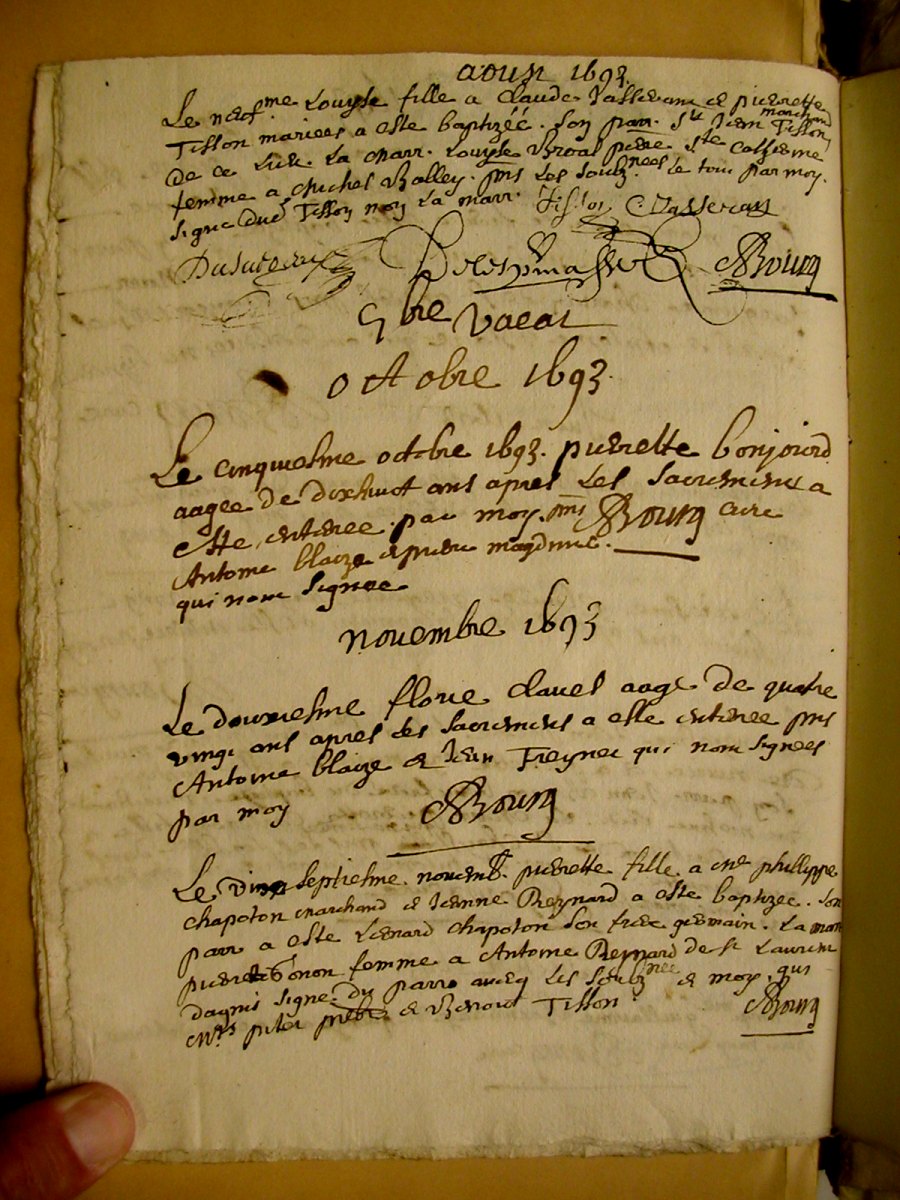 aoust 1693
Le neuf.me Louyse fille a Claude et pierrette
marchand
Tisson mariees a este baptizéé. Son parr. Sr Jean Tisson
de ce Lieu. La marr. Louyse
femme a Michel Valley. pns Les Soubz.nees Le tout par moy.
signe dud Tisson non La marr. Tisson
Bourg
7bre vacat
octobre 1693
Le cinquiesme octobre 1693. pierrette bonjoard
aagee de dixhuict ans apres Les Sacremens a
este enteree par moy. pns Bourg cure
Antoine blaize et pierre
qui nont signee
novembre 1693
Le douziesme florie clavel aage de quatre
vingt ans apres les Sacremens a este enteree pns
Antoine blaize et Jean Freynet qui nont signees
par moy Bourg
Le vingt septiesme novemb. pierrette fille a me phillippe
chapoton marchand et Jeanne Reynard a este baptizee. Son
parr a este Lienard chapoton Son frere germain. La marr
femme a Antoine Reynard de St Laurent
dagnis signe du parr. avecq Les Soubz.nee et moy. qui
piter et Benoit Tisson.
Bourg